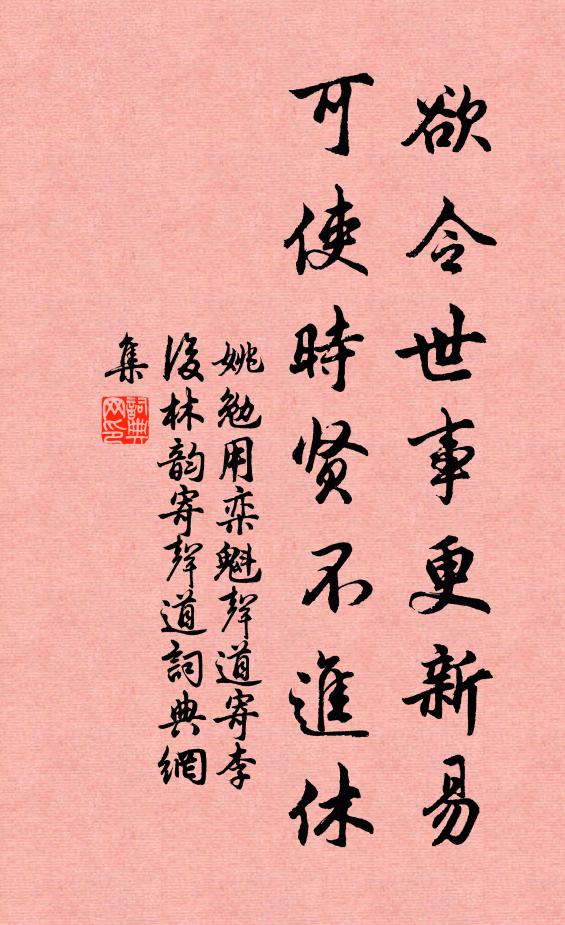 欲令世事更新易
可使時贤不進休
姚勉用栾魁聲道寄李
後林韵寄聲道詞典網
集
詞典网印